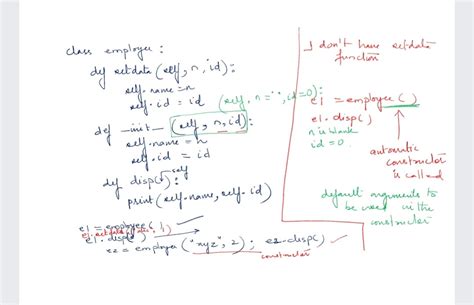 class employee:
def setdata (self, n, id):
self.name = n
self.id = id
(self, n = " ", id = 0):
def __init__ (self, n, id):
self.name = n
self.id = id
def disp(self):
print (self.name, self.id)
e1 = employee ( )
e1.disp( )
e2 = employee ("xyz", 2); e2.disp()
constructor
I don't have setdata
function
e1 = employee ( )
e1.disp()
n is blank
id = 0
automatic
constructor
is called
default arguments to
be used in the
constructor